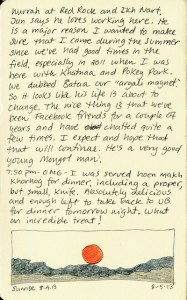 Hurrah at Red Rock and Ikh Nart,
Jun says he loves working here. He
is a major reason I wanted to make
sure that I came during the summer
since we've had good times in the
field, especially in 2011 when I was
here with Khatnaa and Pokey Park.
We dubbed Batra our "argali magnet".
So it looks like his life is about to
change. The nice thing is that we've
been Facebook friends for a couple of
years and have chatted quite a
few times. I expect and hope that
that will continue. He's a very good
young Mongol man.
7:50 pm - OMG - I was served noon makh
khorhog for dinner, including a proper,
but small, knife. Absolutely delicious
and enough left to take back to UB
for dinner tomorrow night. What
an incredible treat!
Sunrise 8-4-13
8-3-13